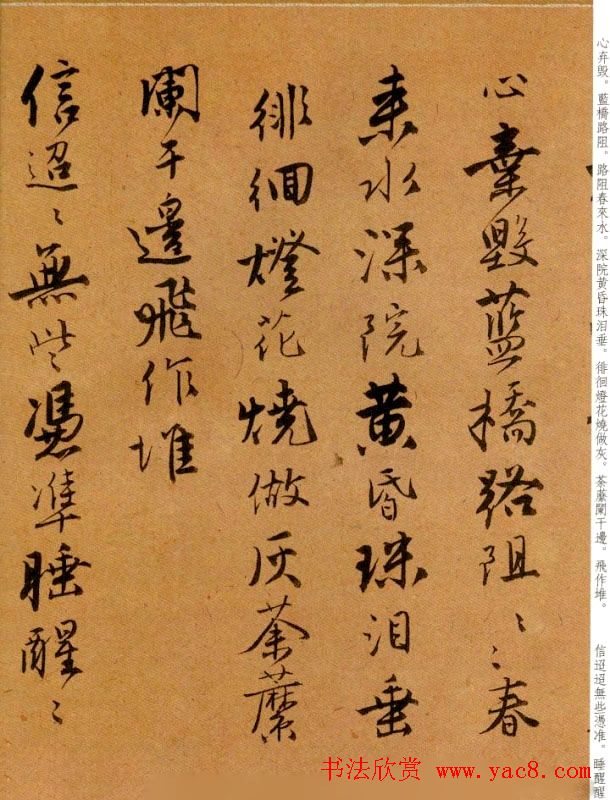 心弃毁。藍橋路阻。路阻春來水。深院黄昏珠泪垂。徘徊燈花燒做灰。荼蘼闌干邊。飛作堆。　信迢迢無些憑准。睡醒醒
心棄毀藍橋路阻〻〻春
來水深院黄昏珠泪垂
徘徊燈花燒做灰荼蘼
闌干邊飛作堆
信迢〻無些憑準睡醒〻
书法欣赏 www.yac8.com